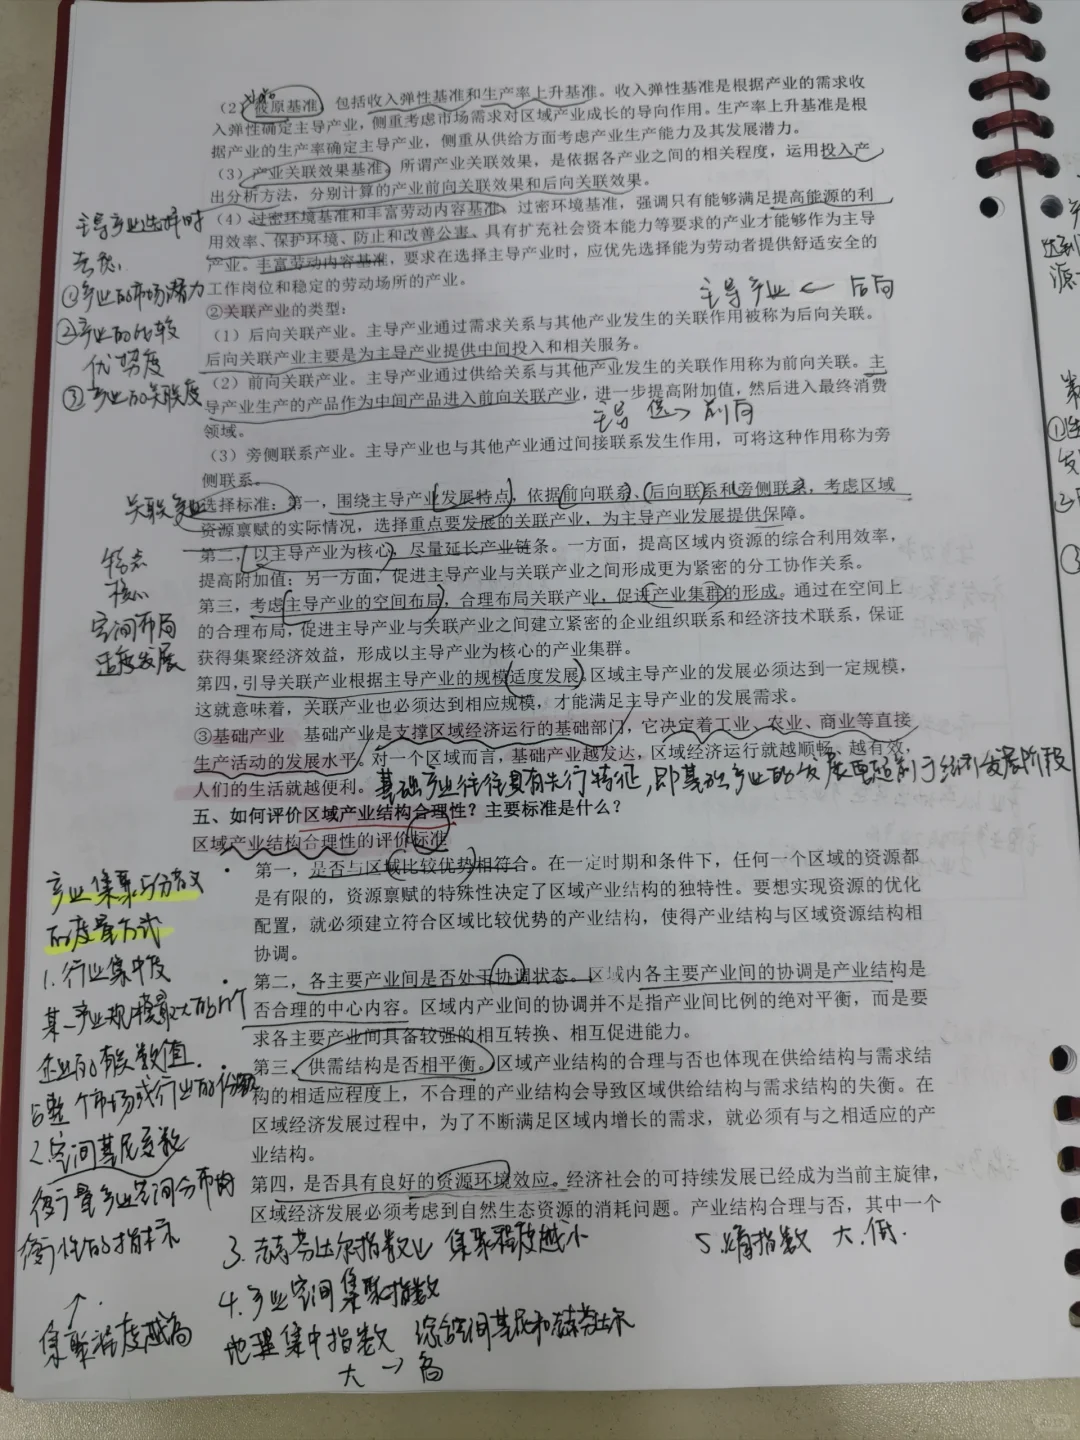 (2)筱原基准，包括收入弹性基准和生产率上升基准。收入弹性基准是根据产业的需求收
入弹性确定主导产业，侧重考虑市场需求对区域产业成长的导向作用。生产率上升基准是根
据产业的生产率确定主导产业，侧重从供给方面考虑产业生产能力及其发展潜力。
(3)产业关联效果基准，所谓产业关联效果，是依据各产业之间的相关程度，运用投入产
出分析方法，分别计算的产业前向关联效果和后向关联效果。
(4)过密环境基准和丰富劳动内容基准，过密环境基准，强调只有能够满足提高能源的利
用效率、保护环境、防止和改善公害、具有扩充社会资本能力等要求的产业才能够作为主导
产业。丰富劳动内容基准，要求在选择主导产业时，应优先选择能为劳动者提供舒适安全的
工作岗位和稳定的劳动场所的产业。
主导产业选择时
考虑
①产业的市场潜力
②产业的比较
优势度
③产业的关联度
②关联产业的类型：
主导产业 ← 后向
(1)后向关联产业。主导产业通过需求关系与其他产业发生的关联作用被称为后向关联。
后向关联产业主要是为主导产业提供中间投入和相关服务。
(2)前向关联产业。主导产业通过供给关系与其他产业发生的关联作用称为前向关联。主
导产业生产的产品作为中间产品进入前向关联产业，进一步提高附加值，然后进入最终消费
领域。
主导 供→ 前向
(3)旁侧联系产业。主导产业也与其他产业通过间接联系发生作用，可将这种作用称为旁
侧联系。
关联产业选择标准：第一，围绕主导产业发展特点，依据前向联系、后向联系和旁侧联系，考虑区域
资源禀赋的实际情况，选择重点要发展的关联产业，为主导产业发展提供保障。
第二，以主导产业为核心，尽量延长产业链条。一方面，提高区域内资源的综合利用效率，
提高附加值；另一方面，促进主导产业与关联产业之间形成更为紧密的分工协作关系。
第三，考虑主导产业的空间布局，合理布局关联产业，促进产业集群的形成。通过在空间上
的合理布局，促进主导产业与关联产业之间建立紧密的企业组织联系和经济技术联系，保证
获得集聚经济效益，形成以主导产业为核心的产业集群。
第四，引导关联产业根据主导产业的规模适度发展。区域主导产业的发展必须达到一定规模，
这就意味着，关联产业也必须达到相应规模，才能满足主导产业的发展需求。
特点
核心
空间布局
适度发展
③基础产业 基础产业是支撑区域经济运行的基础部门，它决定着工业、农业、商业等直接
生产活动的发展水平。对一个区域而言，基础产业越发达，区域经济运行就越顺畅、越有效，
人们的生活就越便利。
基础产业往往具有先行特征，即基础产业的发展要超前于经济发展阶段
五、如何评价区域产业结构合理性？主要标准是什么？
区域产业结构合理性的评价标准
• 第一，是否与区域比较优势相符合。在一定时期和条件下，任何一个区域的资源都
是有限的，资源禀赋的特殊性决定了区域产业结构的独特性。要想实现资源的优化
配置，就必须建立符合区域比较优势的产业结构，使得产业结构与区域资源结构相
协调。
• 第二，各主要产业间是否处于协调状态。区域内各主要产业间的协调是产业结构是
否合理的中心内容。区域内产业间的协调并不是指产业间比例的绝对平衡，而是要
求各主要产业间具备较强的相互转换、相互促进能力。
• 第三，供需结构是否相平衡。区域产业结构的合理与否也体现在供给结构与需求结
构的相适应程度上，不合理的产业结构会导致区域供给结构与需求结构的失衡。在
区域经济发展过程中，为了不断满足区域内增长的需求，就必须有与之相适应的产
业结构。
第四，是否具有良好的资源环境效应。经济社会的可持续发展已经成为当前主旋律，
区域经济发展必须考虑到自然生态资源的消耗问题。产业结构合理与否，其中一个
产业集聚与分散
的度量方式
1.行业集中度
某一产业规模最大的n个
企业的有关数值
占整个市场或行业的份额
2.空间基尼系数
衡量产业空间分布均
衡性的指标
↑
集聚程度越高
3.赫芬达尔指数 集聚程度越小
4.产业空间集聚指数
地理集中指数 综合空间基尼和赫芬达尔
大 → 高
5.熵指数 大.低.